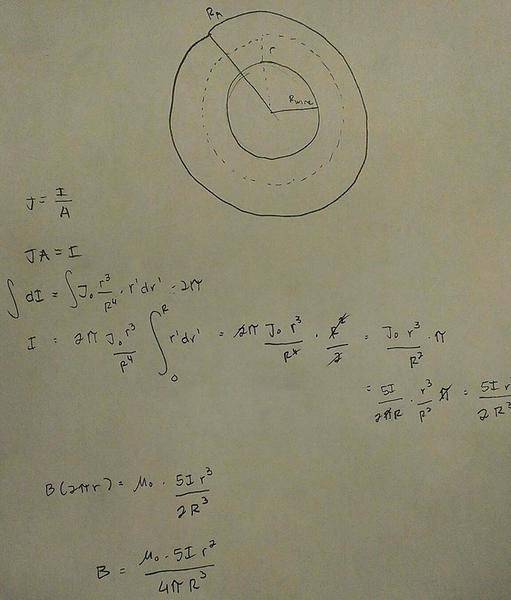 R_A
r
R_wire
J = I/A
JA = I
∫ dI = ∫ J₀ r³/R⁴ · r'dr' · 2π
I = 2π J₀r³/R⁴ ∫₀ᴿ r'dr' = 2π J₀ r³/R⁴ · R²/2 = J₀ r³/R² · π
= 5I/2πR · r³/R² π = 5I r
2R³
B(2πr) = μ₀ · 5I r³/2R³
B = μ₀ · 5I r²/4π R³